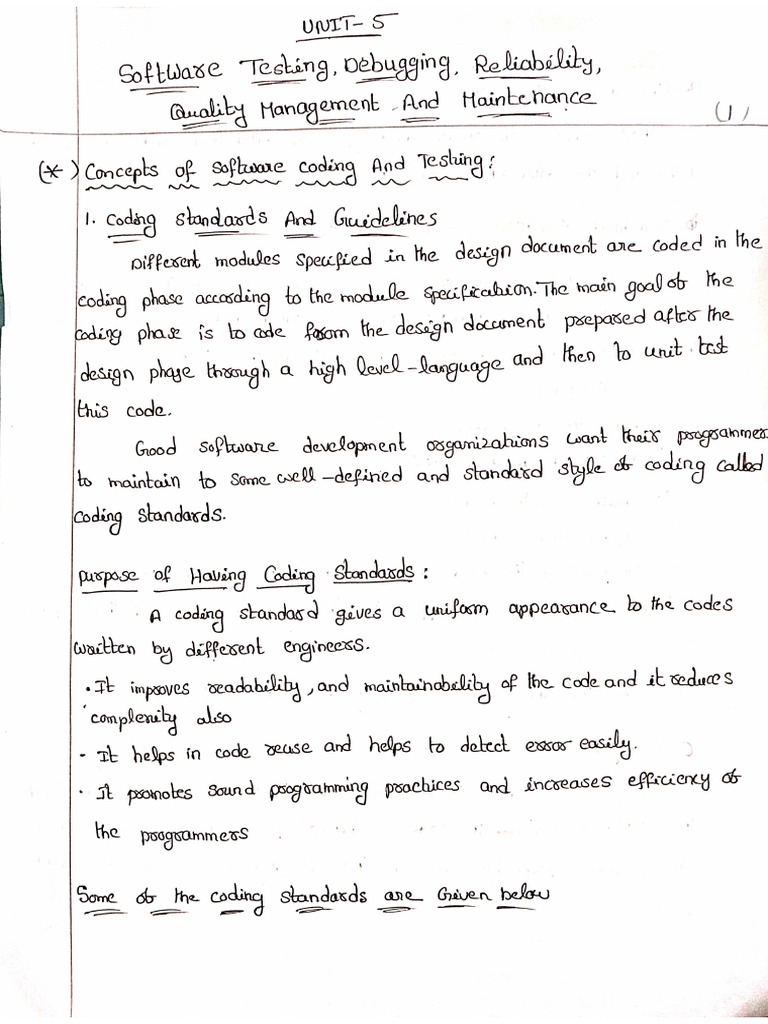 UNIT-5
Software Testing, Debugging, Reliability,
Quality Management And Maintenance
(1)
(*) Concepts of Software Coding And Testing:
1. Coding Standards And Guidelines
Different modules specified in the design document are coded in the
coding phase according to the module specification. The main goal of the
coding phase is to code from the design document prepared after the
design phase through a high level-language and then to unit test
this code.
Good software development organizations want their programmer
to maintain to some well-defined and standard style of coding called
Coding Standards.
purpose of Having Coding Standards:
A coding standard gives a uniform appearance to the codes
written by different engineers.
• It improves readability, and maintainability of the code and it reduces
complexity also
- It helps in code reuse and helps to detect error easily.
• It promotes sound programming practices and increases efficiency of
the programmers
Some of the coding standards are Given below